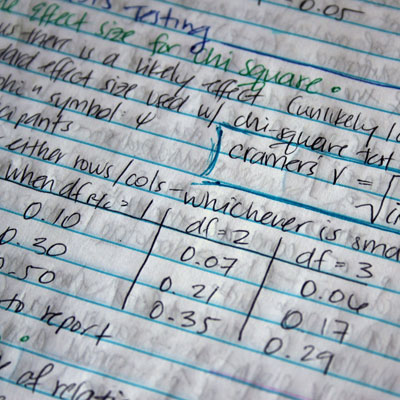 0.05
Testing
effect size for chi square.
there is a likely effect (unlikely
effect size used w/ chi-square test
symbol: ψ
cramers' V = √
either rows/cols - whichever is sma
when df = 1 df = 2 df = 3
0.10 0.07 0.06
0.30 0.21 0.17
0.50 0.35 0.29
to report
of relatio